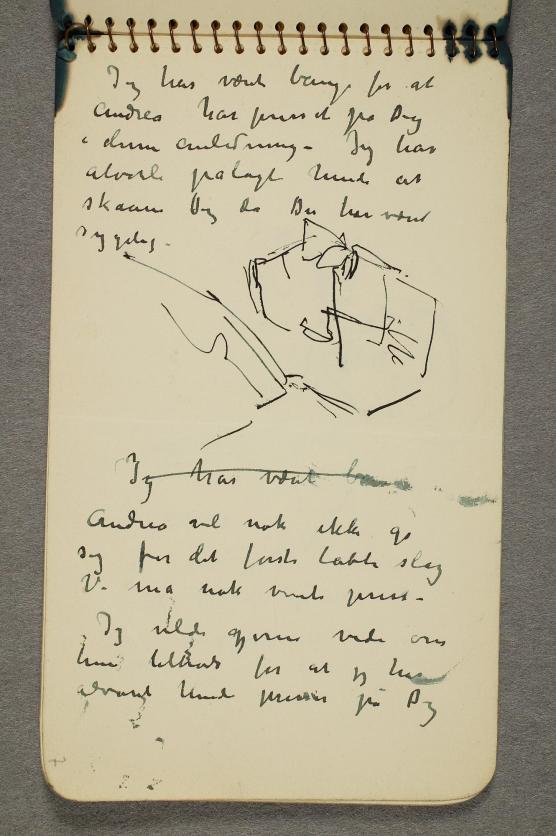 Jeg har været bange for at
Andrea har presset på Dig
i denne anledning – Jeg har
alvorlig pålagt hende at
skaane Dig da Du har været
sygelig –
Jeg har været bange
Andrea vil nok ikke gi
sig for det første tabte slag
Vi må nok vente press –
Jeg vilde gjerne vide om
hun tiltrods for at jeg har
advaret hende presser på Dig